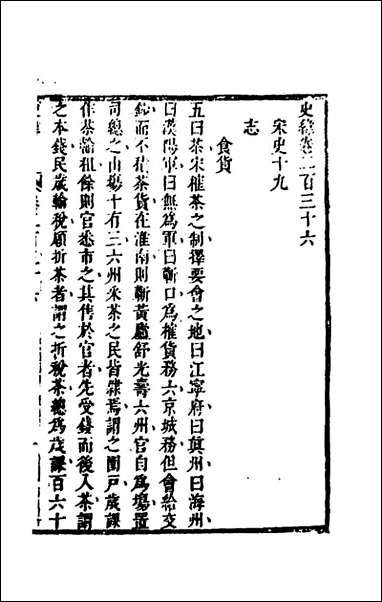 史緯卷二百三十六
宋史十九
志
食貨
五曰茶宋榷茶之制擇要會之地曰江寧府曰真州曰海州
曰漢陽軍曰無為軍曰蘄口為榷貨務六京城務但會給交
鈔而不積茶貨在淮南則蘄黃廬舒光壽六州官自為場置
司總之山場十有三六州采茶之民皆隸焉謂之園戶歲課
作茶輸租餘則官悉市之其售於官者先受錢而後入茶謂
之本錢民歲輸稅願折茶者謂之折稅茶總為歲課百六十